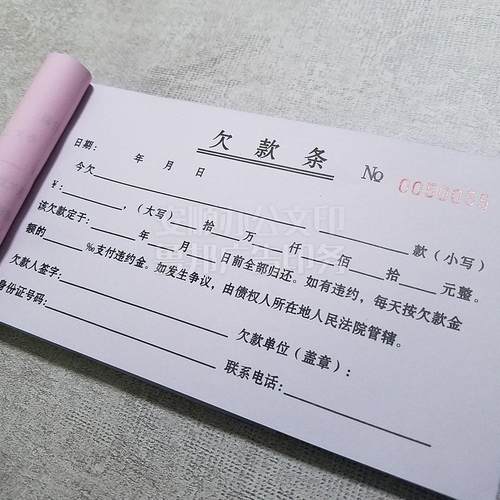 欠款条
No 0050003
日期: 年 月 日
今欠 款(小写)
¥: ,(大写) 拾 万 仟 佰 拾 元整。
该欠款定于: 年 月 日前全部归还。如有违约,每天按欠款金
额的 ‰支付违约金。如发生争议,由债权人所在地人民法院管辖。
欠款人签字: 欠款单位(盖章):
身份证号码: 联系电话: